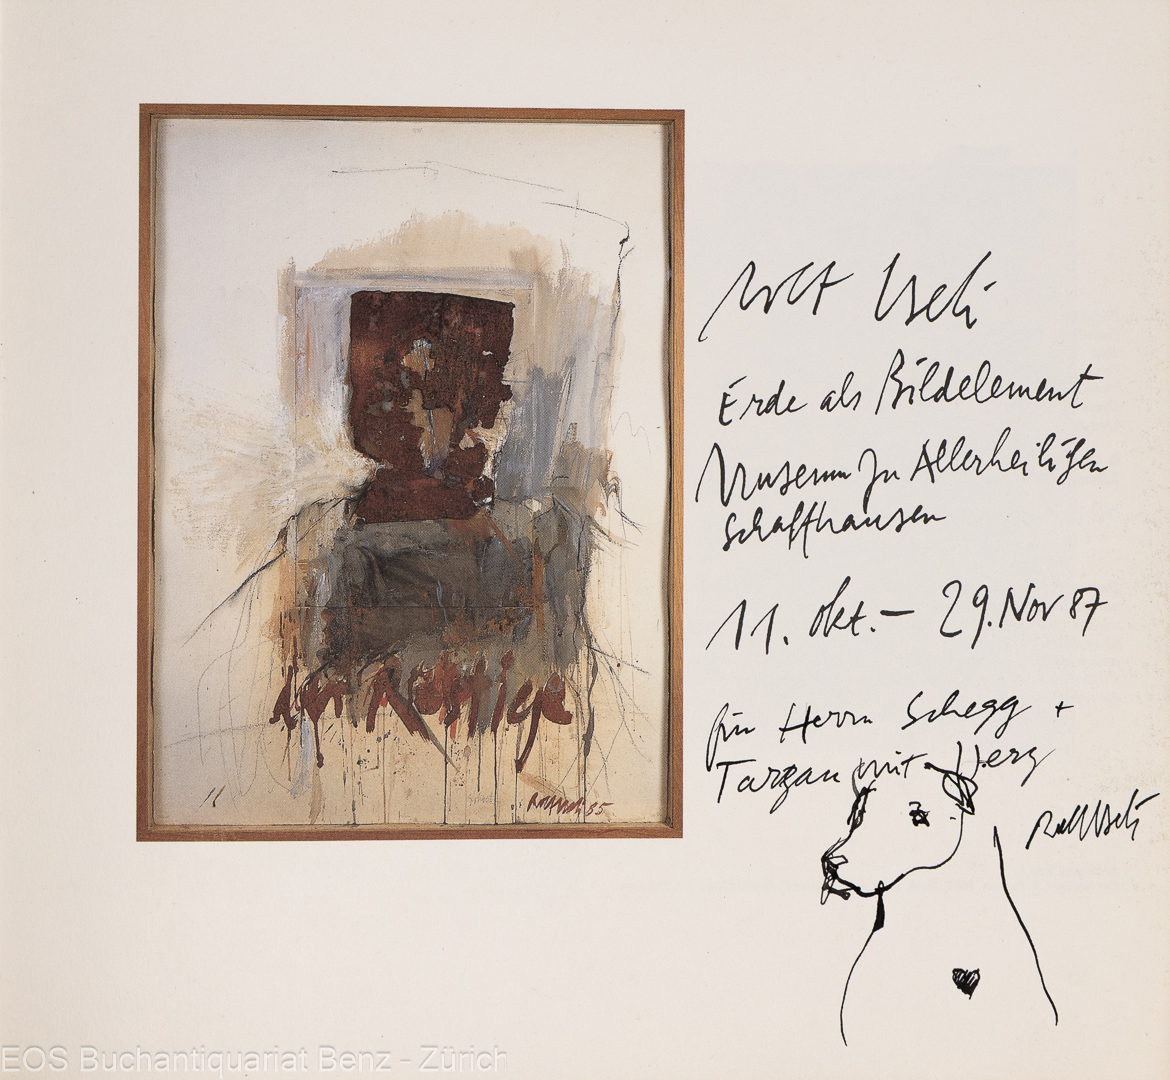 Rolf Iseli
Erde als Bildelement
Museum zu Allerheiligen
Schaffhausen
11. Okt. – 29. Nov 87
für Herrn Schegg +
Tarzan mit Herz
Rolf Iseli
der Rostige
11
85
EOS Buchantiquariat Benz - Zürich